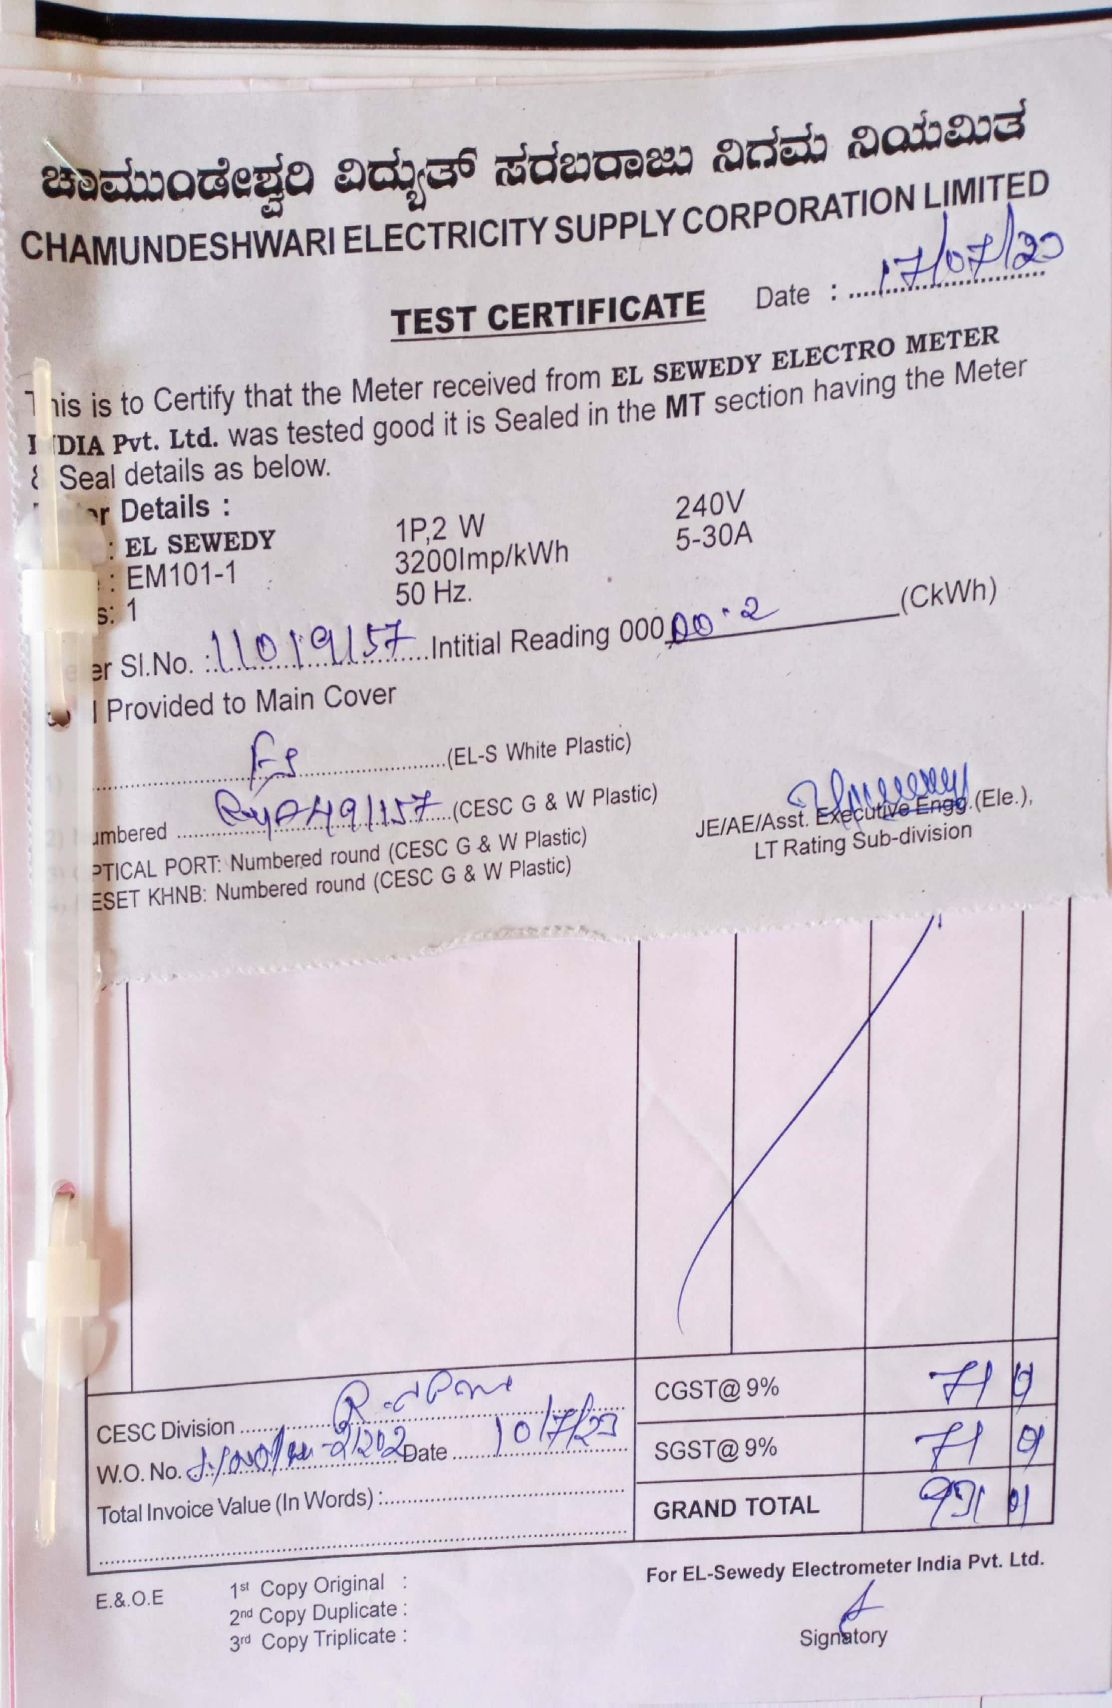 ಚಾಮುಂಡೇಶ್ವರಿ ವಿದ್ಯುತ್ ಸರಬರಾಜು ನಿಗಮ ನಿಯಮಿತ
CHAMUNDESHWARI ELECTRICITY SUPPLY CORPORATION LIMITED
TEST CERTIFICATE Date : 17/07/23
This is to Certify that the Meter received from EL SEWEDY ELECTRO METER
INDIA Pvt. Ltd. was tested good it is Sealed in the MT section having the Meter
& Seal details as below.
Details :
: EL SEWEDY 1P,2 W 240V
: EM101-1 3200Imp/kWh 5-30A
s: 1 50 Hz.
er Sl.No. : 11019157 Intitial Reading 000 00.2 (CkWh)
Provided to Main Cover
(EL-S White Plastic)
umbered (CESC G & W Plastic)
PTICAL PORT: Numbered round (CESC G & W Plastic)
ESET KHNB: Numbered round (CESC G & W Plastic)
JE/AE/Asst. Executive Engg.(Ele.),
LT Rating Sub-division
CGST@ 9% 71
SGST@ 9% 71
GRAND TOTAL 931
CESC Division
W.O. No. Date 10/7/23
Total Invoice Value (In Words) :
For EL-Sewedy Electrometer India Pvt. Ltd.
E.&.O.E 1st Copy Original :
2nd Copy Duplicate :
3rd Copy Triplicate :
Signatory